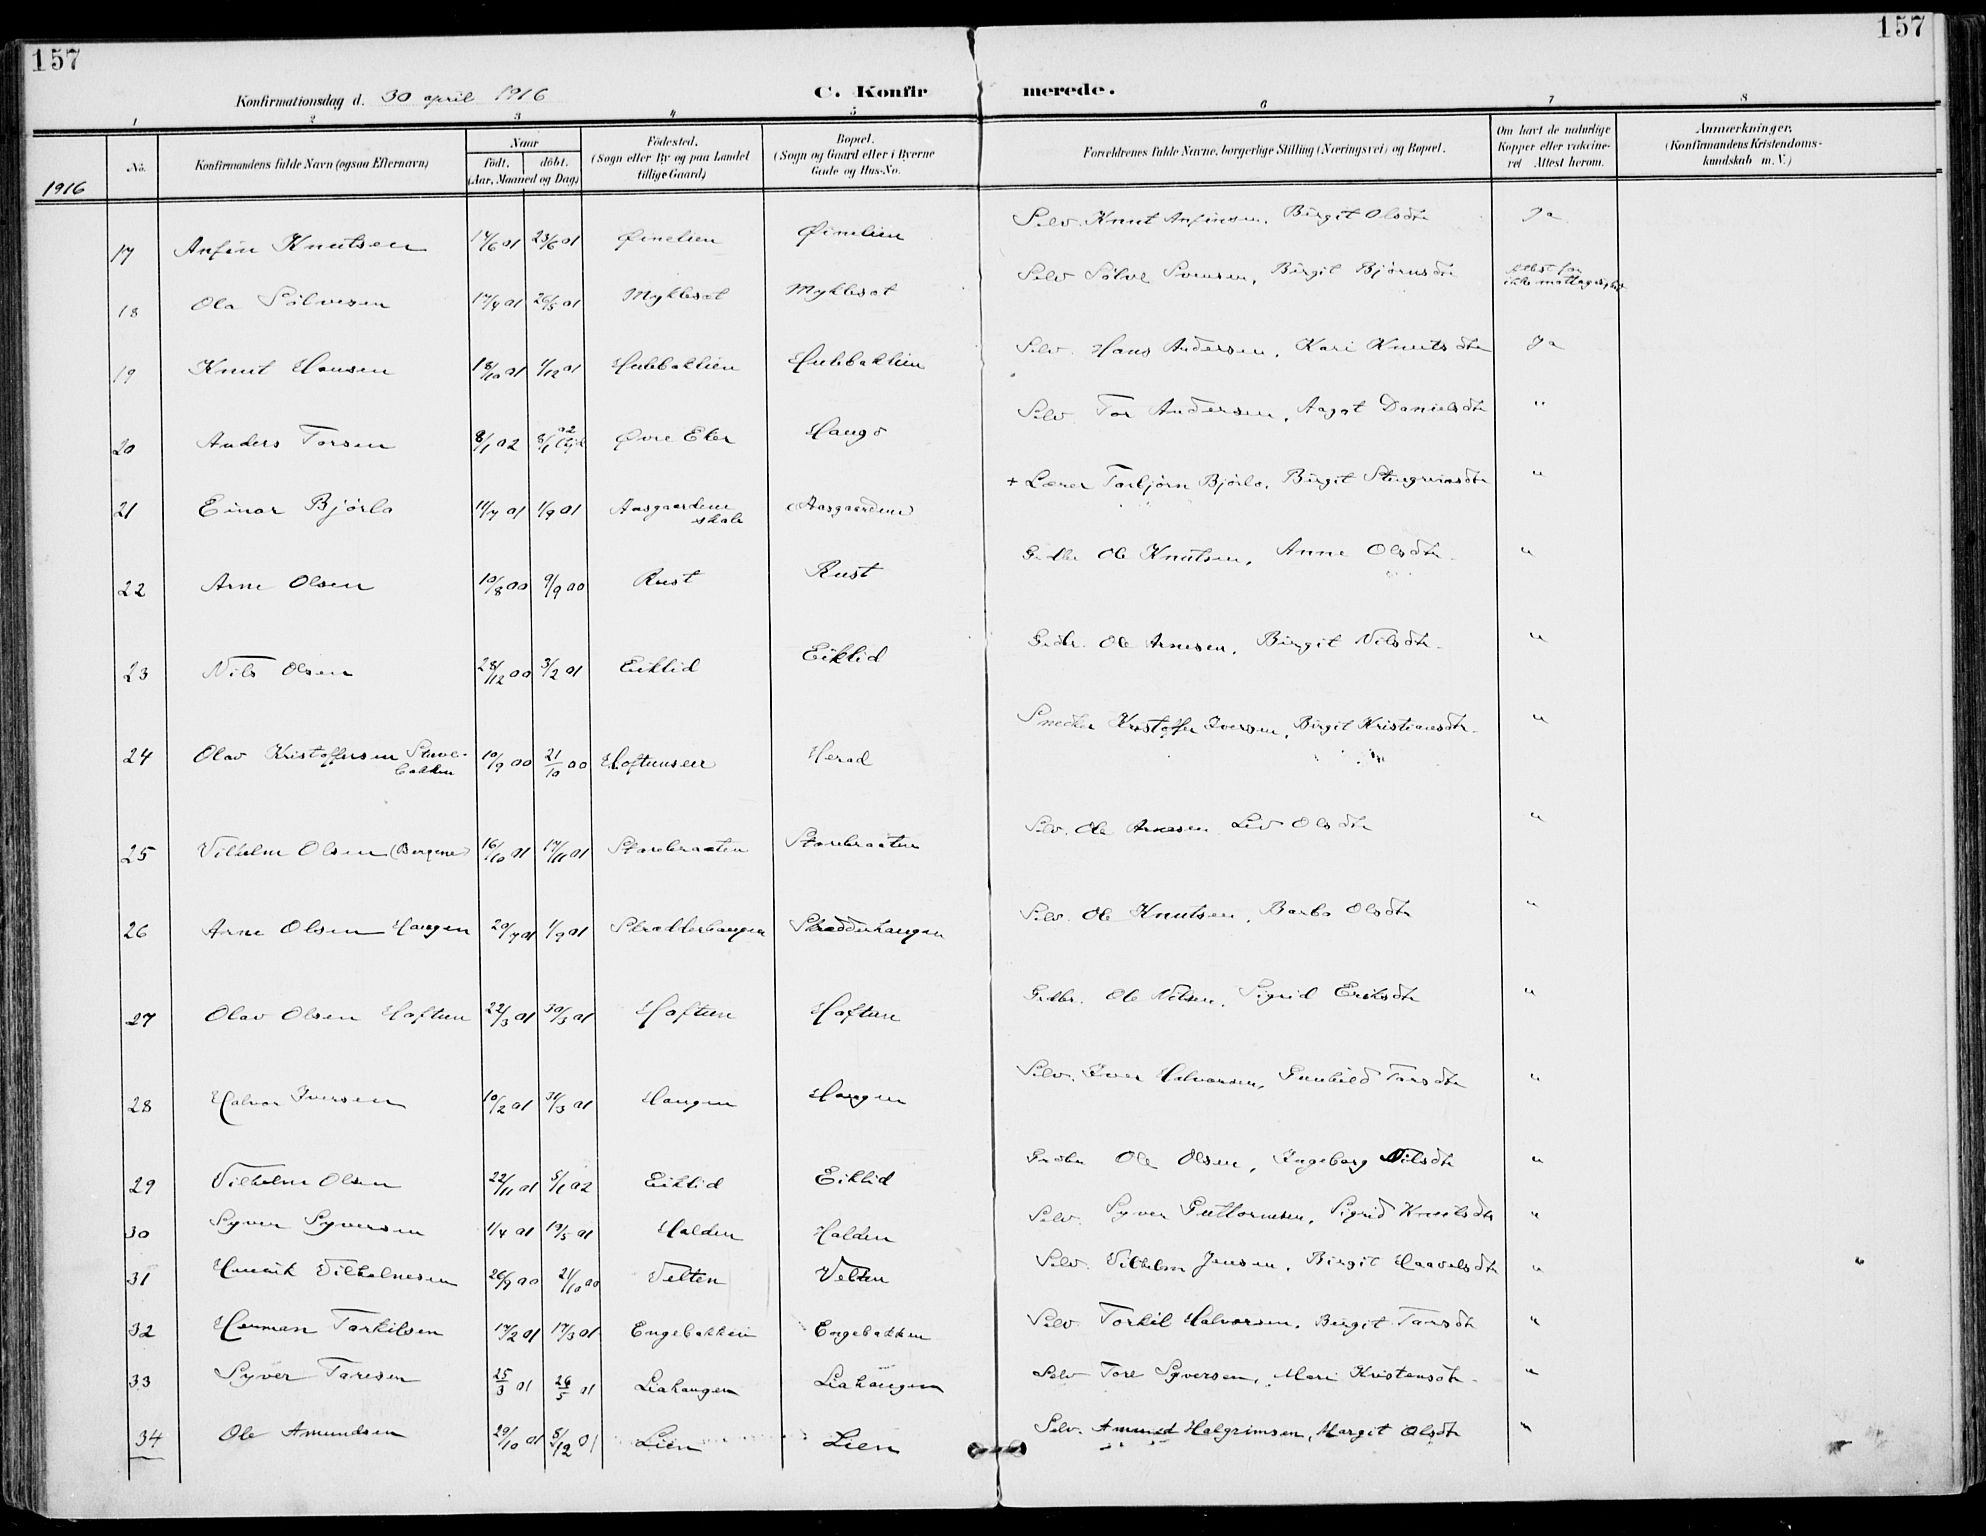 157
157
Konfirmationsdag d. 30 april 1916
C. Konfirmerede.
1 2 3 4 5 6 7 8
No.
Konfirmandens fulde Navn (ogsaa Efternavn)
Naar
født. døbt.
(Aar, Maaned og Dag)
Fødested.
(Sogn eller By og paa Landet
tillige Gaard)
Bopæl.
(Sogn og Gaard eller i Byerne
Gade og Hus-No.
Forældrenes fulde Navne, borgerlige Stilling (Næringsvei) og Bopæl.
Om havt de naturlige
Kopper eller vaccine-
ret Attest herom.
Anmærkninger.
(Konfirmandens Kristendoms-
kundskab m. V.)
1916
17 Anfin Knutsen 14/6 01 23/6 01 Ørnelien Ørnelien Selv. Knut Anfinsen, Birgit Olsdtr Ja
18 Ola Sölvesen 17/4 01 26/5 01 Myklesat Myklesat Selv Sölve Svensen, Birgit Björnsdtr
19 Knut Hansen 18/10 01 1/12 01 Hulebaklien Hulebaklien Selv. Hans Andersen, Kari Knutsdtr Ja
20 Anders Torsen 8/1 02 Øvre Eker Haugo Selv. Tor Andersen, Aagot Danielsdtr "
21 Einar Björlo 14/7 01 1/9 01 Aasgaardene
skole (Aasgaardene) + Lærer Torbjörn Björlo, Birgit Stengrimsdtr "
22 Arne Olsen 10/8 00 9/9 00 Rust Rust Grdbr Ole Knutsen, Anne Olsdtr. "
23 Nils Olsen 28/12 00 3/2 01 Eiklid Eiklid Grdbr. Ole Arnesen, Birgit Nilsdtr. "
24 Olav Kristoffersen 10/9 00 21/10 00 Hoftunseie Herad Snedker Kristoffer Iversen, Birgit Kristiansdtr. "
25 Vilhelm Olsen (Bergene) 16/10 01 17/11 01 Storebraaten Storebraaten Selv. Ole Arnesen, Liv Olsdtr "
26 Arne Olsen Haugen 20/7 01 1/9 01 Skredderhaugen Skredderhaugen Selv. Ole Knutsen, Barbo Olsdtr "
27 Olav Olsen Hoftun 22/3 01 30/3 01 Hoftun Hoftun Grdbr. Ole Nilsen, Sigrid Eriksdtr "
28 Halvor Iversen 10/2 01 31/3 01 Haugen Haugen Selv. Iver Halvorsen, Gunhild Torsdtr "
29 Vilhelm Olsen 22/11 01 5/1 02 Eiklid Eiklid Grdbr Ole Olsen, Ingeborg Nilsdtr "
30 Syver Syversen 1/4 01 19/5 01 Halden Halden Selv. Syver Guttormsen, Sigrid Knutsdtr "
31 Henrik Vilhelmsen 26/9 00 21/10 00 Velten Velten Selv. Vilhelm Jensen, Birgit Haavelsdtr "
32 Herman Torkilsen 14/2 01 17/3 01 Engebakken Engebakken Selv Torkil Halvorsen, Birgit Torsdtr "
33 Syver Toresen 25/3 01 26/5 01 Liahaugen Liahaugen Selv Tore Syversen, Mari Kristensdtr. "
34 Ole Amundsen 29/10 01 5/12 01 Lien Lien Selv. Amund Halgrimsen, Margit Olsdtr "